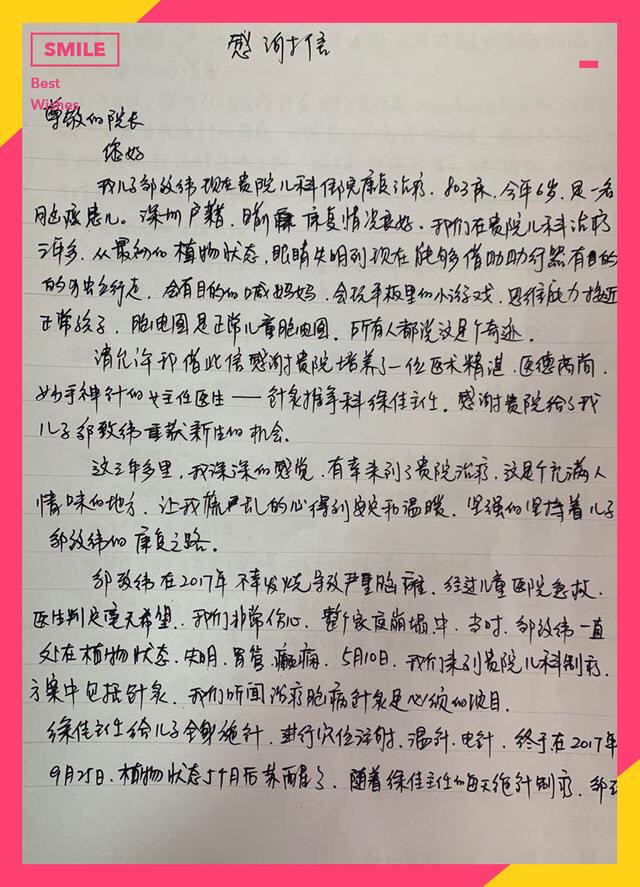 SMILE
Best
Wishes
感谢信
尊敬的院长
您好
我儿子邹致纬现在贵院儿科住院康复治疗，803床，今年6岁，是一名
脑瘫患儿。深圳户籍，目前 康复情况良好。我们在贵院儿科治疗
三年多，从最初的植物状态，眼睛失明到现在能够借助助行器有目的
的独立行走，会有目的的喊妈妈，会玩平板里的小游戏，思维能力接近
正常孩子，脑电图是正常儿童脑电图，所有人都说这是个奇迹。
请允许我借此信感谢贵院培养了一位医术精湛，医德高尚，
妙手神针的女主任医生——针灸推拿科徐佳主任。感谢贵院给了我
儿子邹致纬重获新生的机会。
这三年多里，我深深的感觉，有幸来到了贵院治疗，这是个充满人
情味的地方，让我 乱的心得到安定和温暖，坚强的坚持着儿子
邹致纬的康复之路。
邹致纬在2017年不幸发烧导致严重脑瘫，经过儿童医院急救，
医生判定毫无希望，我们非常伤心，整个家庭崩塌中，当时，邹致纬一直
处在植物状态，失明，胃管，癫痫，5月10日，我们来到贵院儿科制疗，
方案中包括针灸，我们听闻治疗脑病针灸是必须的项目。
徐佳主任给儿子全身施针，进行穴位注射，温针，电针，终于在2017年
9月25日，植物状态5个月后苏醒了，随着徐佳主任的每天施针制疗，邹致